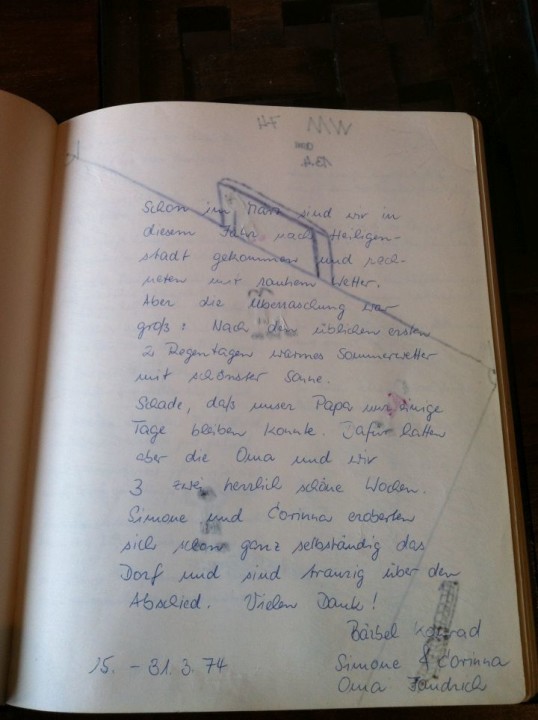 Schon im März sind wir in
diesem Jahr nach Heiligen-
stadt gekommen und rech-
neten mit rauhem Wetter.
Aber die Überraschung war
groß: Nach den üblichen ersten
2 Regentagen warmes Sommerwetter
mit schönster Sonne.
Schade, daß unser Papa nur einige
Tage bleiben konnte. Dafür hatten
aber die Oma und wir
3 zwei herrlich schöne Wochen.
Simone und Corinna eroberten
sich schon ganz selbständig das
Dorf und sind traurig über den
Abschied. Vielen Dank!
Bärbel Konrad
15. - 31.3.74 Simone & Corinna
Oma